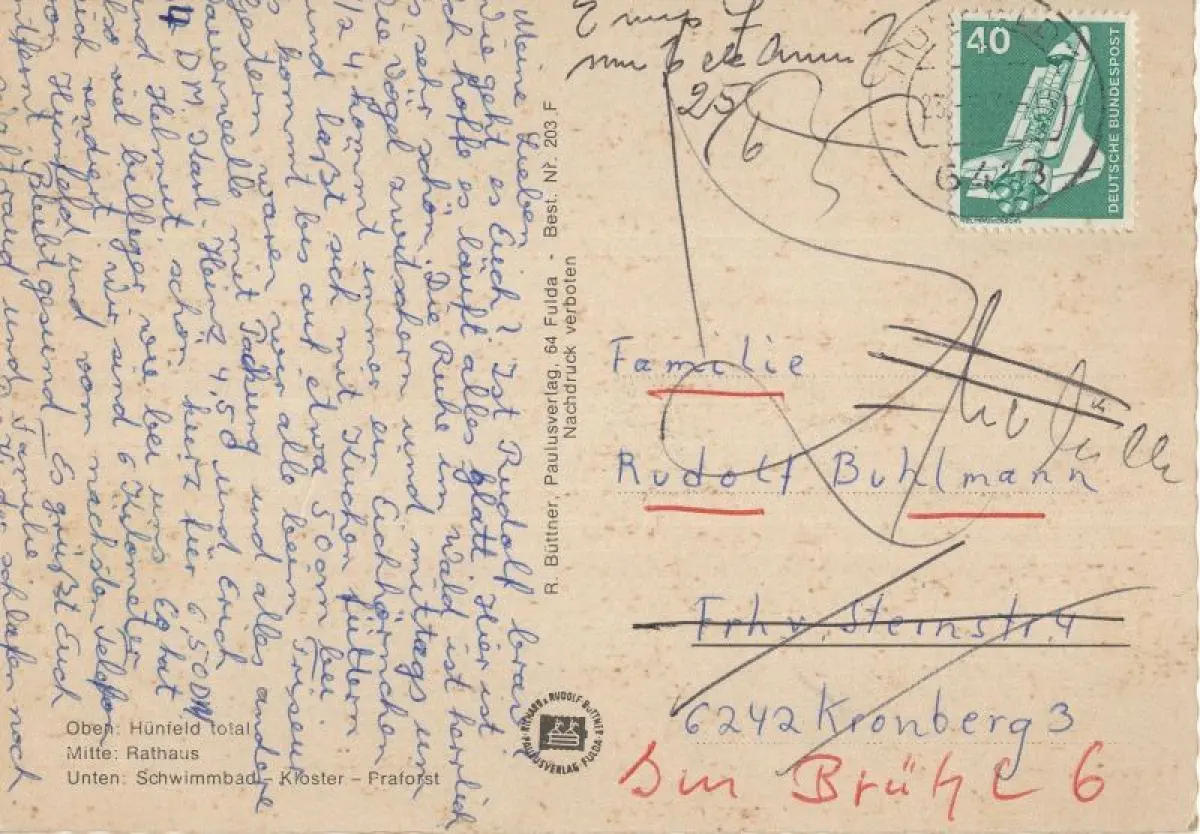 Meine Lieben!
Wie geht es Euch? Ist Rudolf brav
ich hoffe es läuft alles glatt. Hier ist
es sehr schön. Die Ruhe im Wald ist herrlich
die Vögel zwitschern und mittags um
1/2 4 kommt immer ein Eichhörnchen
und laßt sich mit Kuchen füttern
es kommt bis auf etwa 50 cm bei
gestern waren wir alle beim Friseur
Dauerwelle mit Packung und alles andere
17 DM. Karl-Heinz 4,50 und Erich
und Helmut schön kurz für 6,50 DM
also viel billiger wie bei uns. Es hat
sich rendiert wir sind 6 Kilometer
von Hünfeld und vom nächsten Telefon
entfernt. Bleibt gesund. Es grüßt Euch
Familie
und schlafen noch
Oben: Hünfeld total
Mitte: Rathaus
Unten: Schwimmbad – Kloster – Praforst
R. Büttner, Paulusverlag, 64 Fulda - Best. Nr. 203 F
Nachdruck verboten
RICHARD & RUDOLF BÜTTNER
PAULUSVERLAG FULDA
40
DEUTSCHE BUNDESPOST
6413
25/6
Familie
Rudolf Buhlmann
Frh v. Steinstr. 4
6242 Kronberg 3
Brühl 6